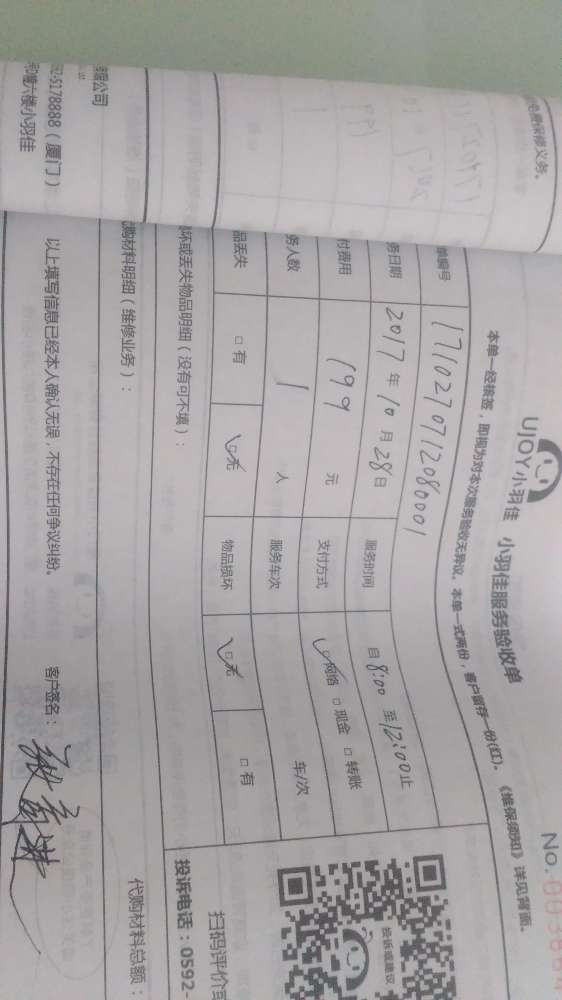 UJOY小羽佳 小羽佳服务验收单
No.
本单一经核签，即视为对本次服务验收无异议。本单一式两份，客户留存一份(红)。《维保须知》详见背面。
单编号 17102707712080001
务日期 2017年10月28日 服务时间 自8:00至12:00止
付费用 199 元 支付方式 ☑网络 □现金 □转账
务人数 1 人 服务车次 车/次
品丢失 □有 ☑无 物品损坏 ☑无 □有
坏或丢失物品明细（没有可不填）：
购材料明细（维修业务）：
代购材料总额：
以上填写信息已经本人确认无误，不存在任何争议纠纷。
客户签名：
投诉或建议
扫码评价或
投诉电话：0592-
保修义务。
公司
92-5178888（厦门）
六楼小羽佳